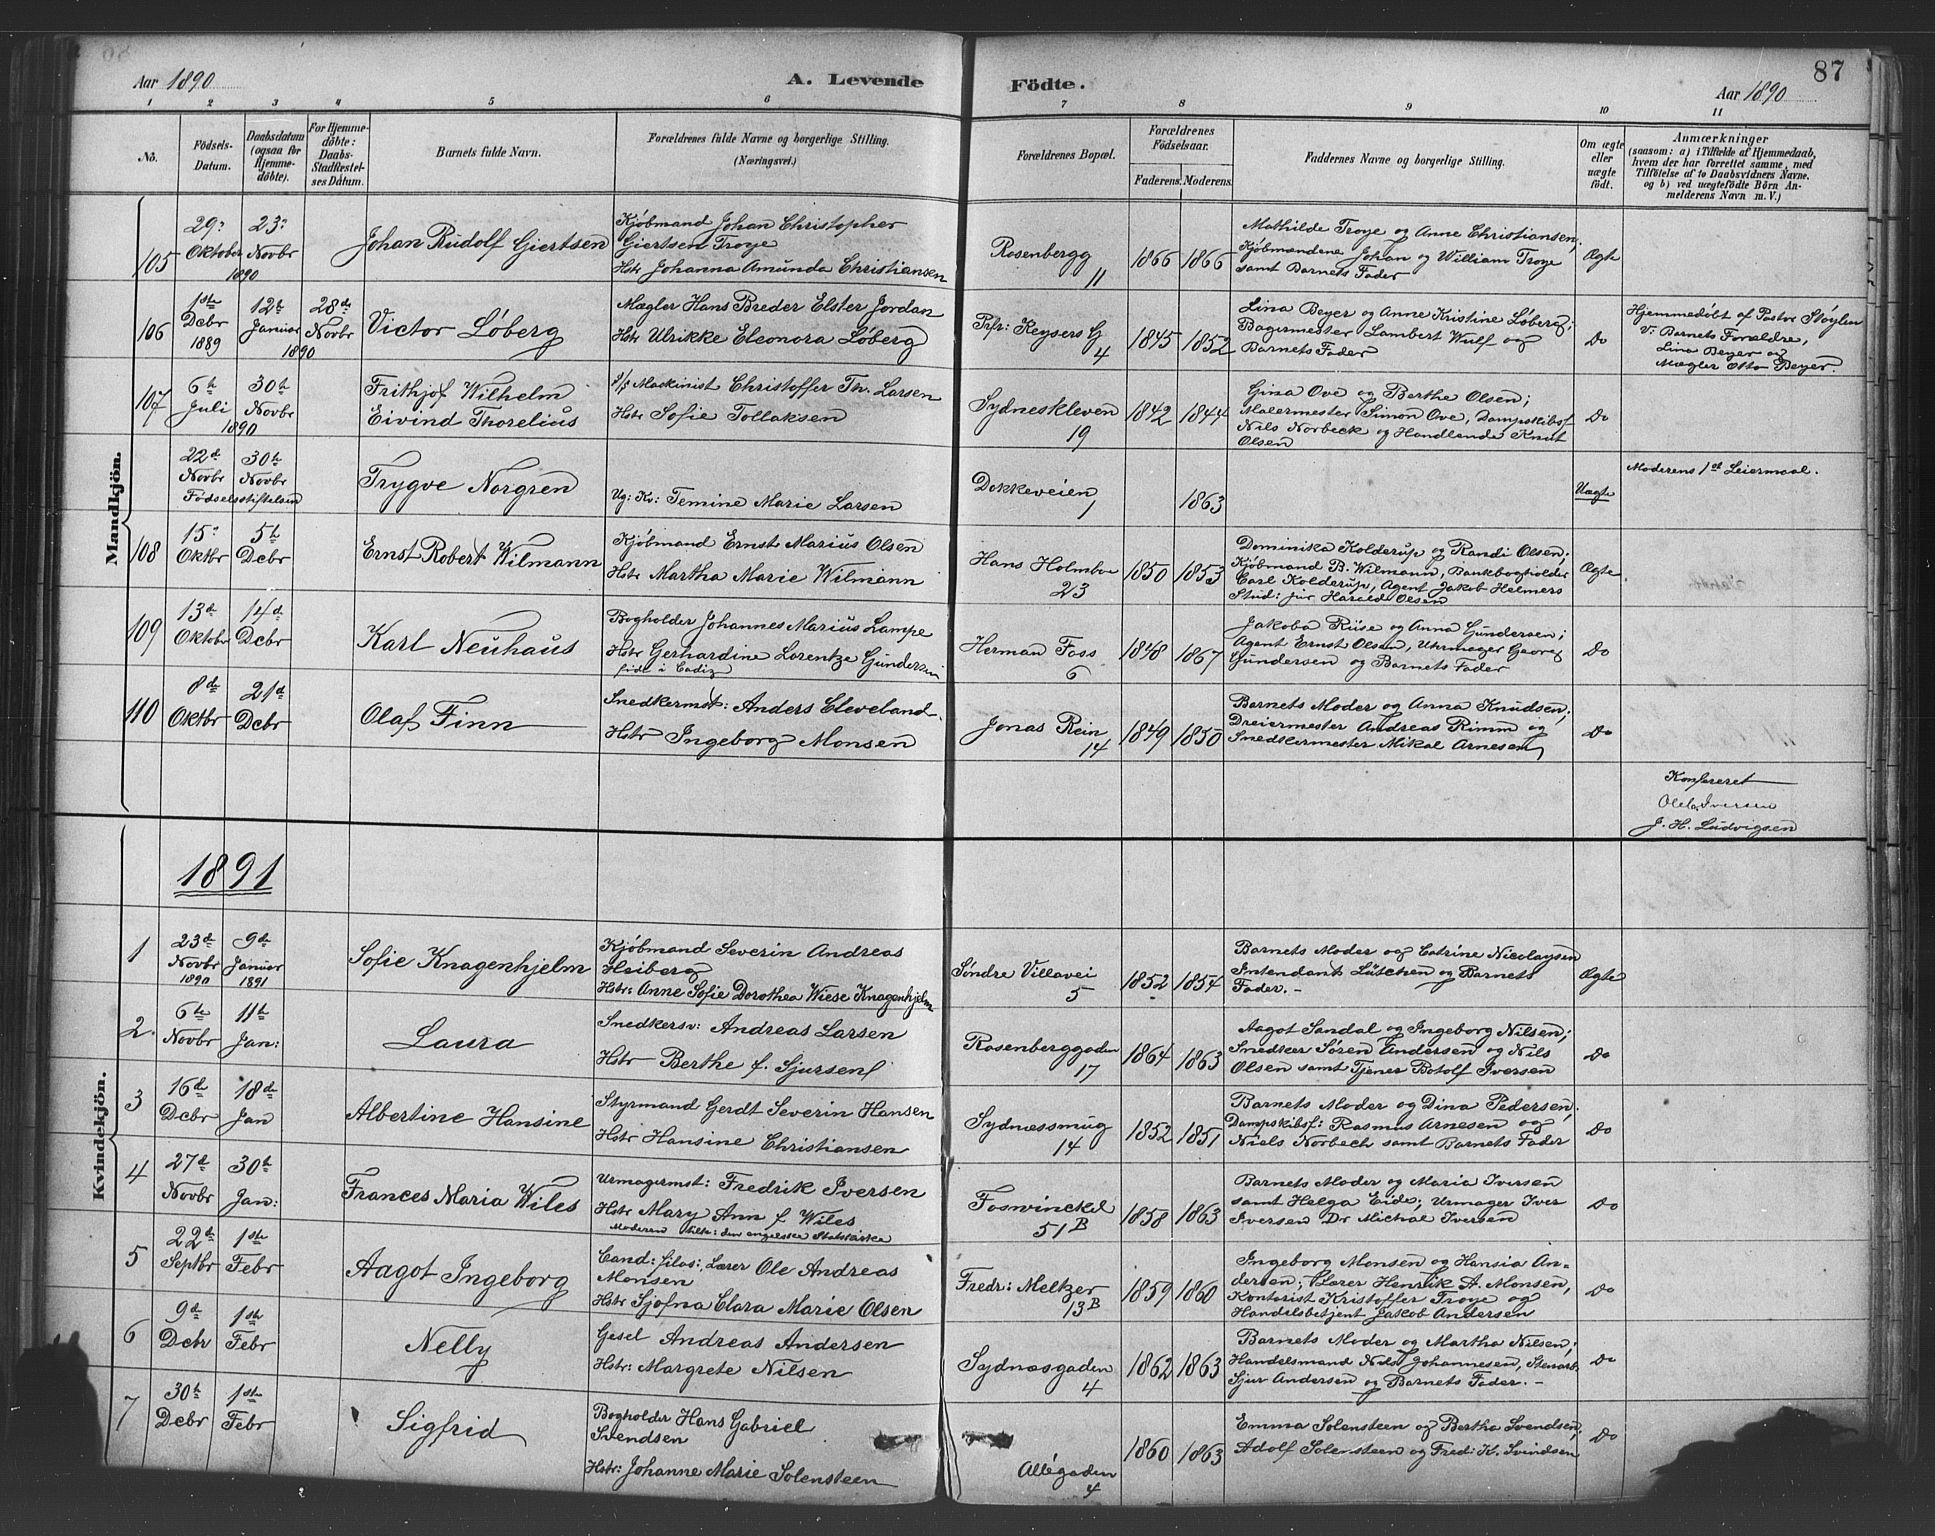 Aar 1890
A. Levende Födte.
87
Aar 1890
1 2 3 4 5 6 7 8 9 10 11
No.
Födsels-
Datum.
Daabsdatum
(ogsaa for
Hjemme-
döbte).
For Hjemme-
döbte:
Daabs-
Stadfæstel-
ses Datum.
Barnets fulde Navn.
Forældrenes fulde Navne og borgerlige Stilling.
(Næringsvei.)
Forældrenes Bopæl.
Forældrenes
Födselsaar.
Faderens. Moderens.
Faddernes Navne og borgerlige Stilling.
Om ægte
eller
uægte
födt.
Anmærkninger
(saasom: a) i Tilfælde af Hjemmedaab,
hvem der har forrettet samme, med
Tilföielse af to Daabsvidners Navne.
og b) ved uægtefödte Börn An-
melderens Navn m. V.)
Mandkjön.
105
29de
Oktober
23de
Novbr
1890
Johan Rudolf Giertsen
Kjøbmand Johan Christopher
Giertsen Troye
Hstr Johanna Amunda Christiansen
Rosenbergg
11
1866 1866
Mathilde Troye og Anne Christiansen;
Kjøbmændene Johan og William Troye
samt Barnets Fader
Ægte
106
1ste
Dcbr
1889
12te
Januar
1890
28de
Novbr
Victor Løberg
Mægler Hans Breder Elster Jordan
Hstr Ulrikke Eleonora Løberg
Prf: Keysers G
4
1845 1852
Lina Beyer og Anne Kristine Løberg;
Bagermester Lambert Wulf og
Barnets Fader
Do
Hjemmedöbt af Pastor Støylen
V: Barnets Forældre,
Lina Beyer og
Mægler Otto Beyer.
107
6te
Juli
30te
Novbr
1890
Frithjof Wilhelm
Eivind Thorelius
d/s Maskinist Christoffer Th. Larsen
Hstr Sofie Tollaksen
Sydneskleven
19
1842 1844
Gina Ove og Berthe Olsen;
Malermester Simon Ove, Dampskibsf
Nils Norbeck og Handlende Knut
Olsen
Do
22de
Novbr
30te
Novbr
Födselsstiftelsen
Trygve Norgren
Ug: Kv: Temine Marie Larsen
Dokkeveien
1
1863
Uægte
Moderens 1st Leiermaal.
108
15de
Oktbr
5te
Dcbr
Ernst Robert Wilmann
Kjøbmand Ernst Marius Olsen
Hstr Martha Marie Wilmann
Hans Holmboe
23
1850 1853
Dominika Kolderup og Randi Olsen;
Kjøbmand B. Wilmann, Bankbogholder
Carl Kolderup, Agent Jakob Helmers
Stud: jur Harald Olsen
Ægte
109
13de
Oktober
14de
Dcbr
Karl Neuhaus
Bogholder Johannes Marius Lampe
Hstr Gerhardine Lorentze Gundersen
født i Cadiz
Herman Foss
6
1848 1867
Jakoba Riise og Anna Gundersen;
Agent Ernst Olsen, Uhrmager Georg
Gundersen og Barnets Fader
Do
110
8de
Oktbr
21de
Dcbr
Olaf Finn
Snedkermst: Anders Cleveland
Hstr Ingeborg Monsen
Jonas Rein
14
1849 1850
Barnets Moder og Anna Knudsen;
Dreiermester Andreas Rimm og
Snedkermester Mikal Arnesen
Do
Konfereret
Ole Iversen
J. H. Ludvigsen
1891
Kvindekjön.
1
23de
Novbr
1890
9de
Januar
1891
Sofie Knagenhjelm
Kjøbmand Severin Andreas
Heiberg
Hstr: Anne Sofie Dorothea Wiese Knagenhjelm
Søndre Villavei
5
1852 1854
Barnets Moder og Catrine Nicolaysen
Intendant Lütchen og Barnets
Fader.-
Ægte
2.
6te
Novbr
11te
Jan:
Laura
Snedkersv: Andreas Larsen
Hstr Berthe f. Sjursen
Rosenberggaden
17
1864 1863
Aagot Sandal og Ingeborg Nilsen;
Snedker Søren Andersen og Nils
Olsen samt Tjener Botolf Iversen
Do
3
16de
Dcbr
18de
Jan
Albertine Hansine
Styrmand Gerdt Severin Hansen
Hstr Hansine Christiansen
Sydnæssmug
14
1852 1851
Barnets Moder og Dina Pedersen;
Dampskibsf: Rasmus Arnesen og
Niels Norbech samt Barnets Fader
Do
4
27de
Novbr
30te
Jan:
Frances Maria Wiles
Urmagermst: Fredrik Iversen
Hstr Mary Ann f Wiles
Moderen tilh: den engelske Statskirke
Foswinckel
51B
1858 1863
Barnets Moder og Maria Iversen
samt Helga Eide; Urmager Iver
Iversen Dr Michal Iversen
Do
5
22de
Septbr
1ste
Febr
Aagot Ingeborg
Cand: filos:, Lærer Ole Andreas
Monsen
Hstr Sjofna Clara Marie Olsen
Fredr: Meltzer
13B
1859 1860
Ingeborg Monsen og Hansia An-
dersen; Lærer Henrik A. Monsen,
Kontorist Kristoffer Troye og
Handelsbetjent Jakob Andersen
Do
6
9de
Dcbr
1ste
Febr
Nelly
Gesel Andreas Andersen
Hstr: Margrete Nilsen
Sydnæsgaden
4
1862 1863
Barnets Moder og Martha Nilsen;
Handelsmand Nils Johannesen, Stenarb:
Sjur Andersen og Barnets Fader.-
Do
7
30te
Dcbr
1ste
Febr
Sigfrid
Bogholder Hans Gabriel
Svendsen
Hstr: Johanne Marie Solensteen
Allégaden
4
1860 1863
Emma Solensteen og Bertha Svendsen,
Adolf Solensteen og Fred: K. Svindsen
Do